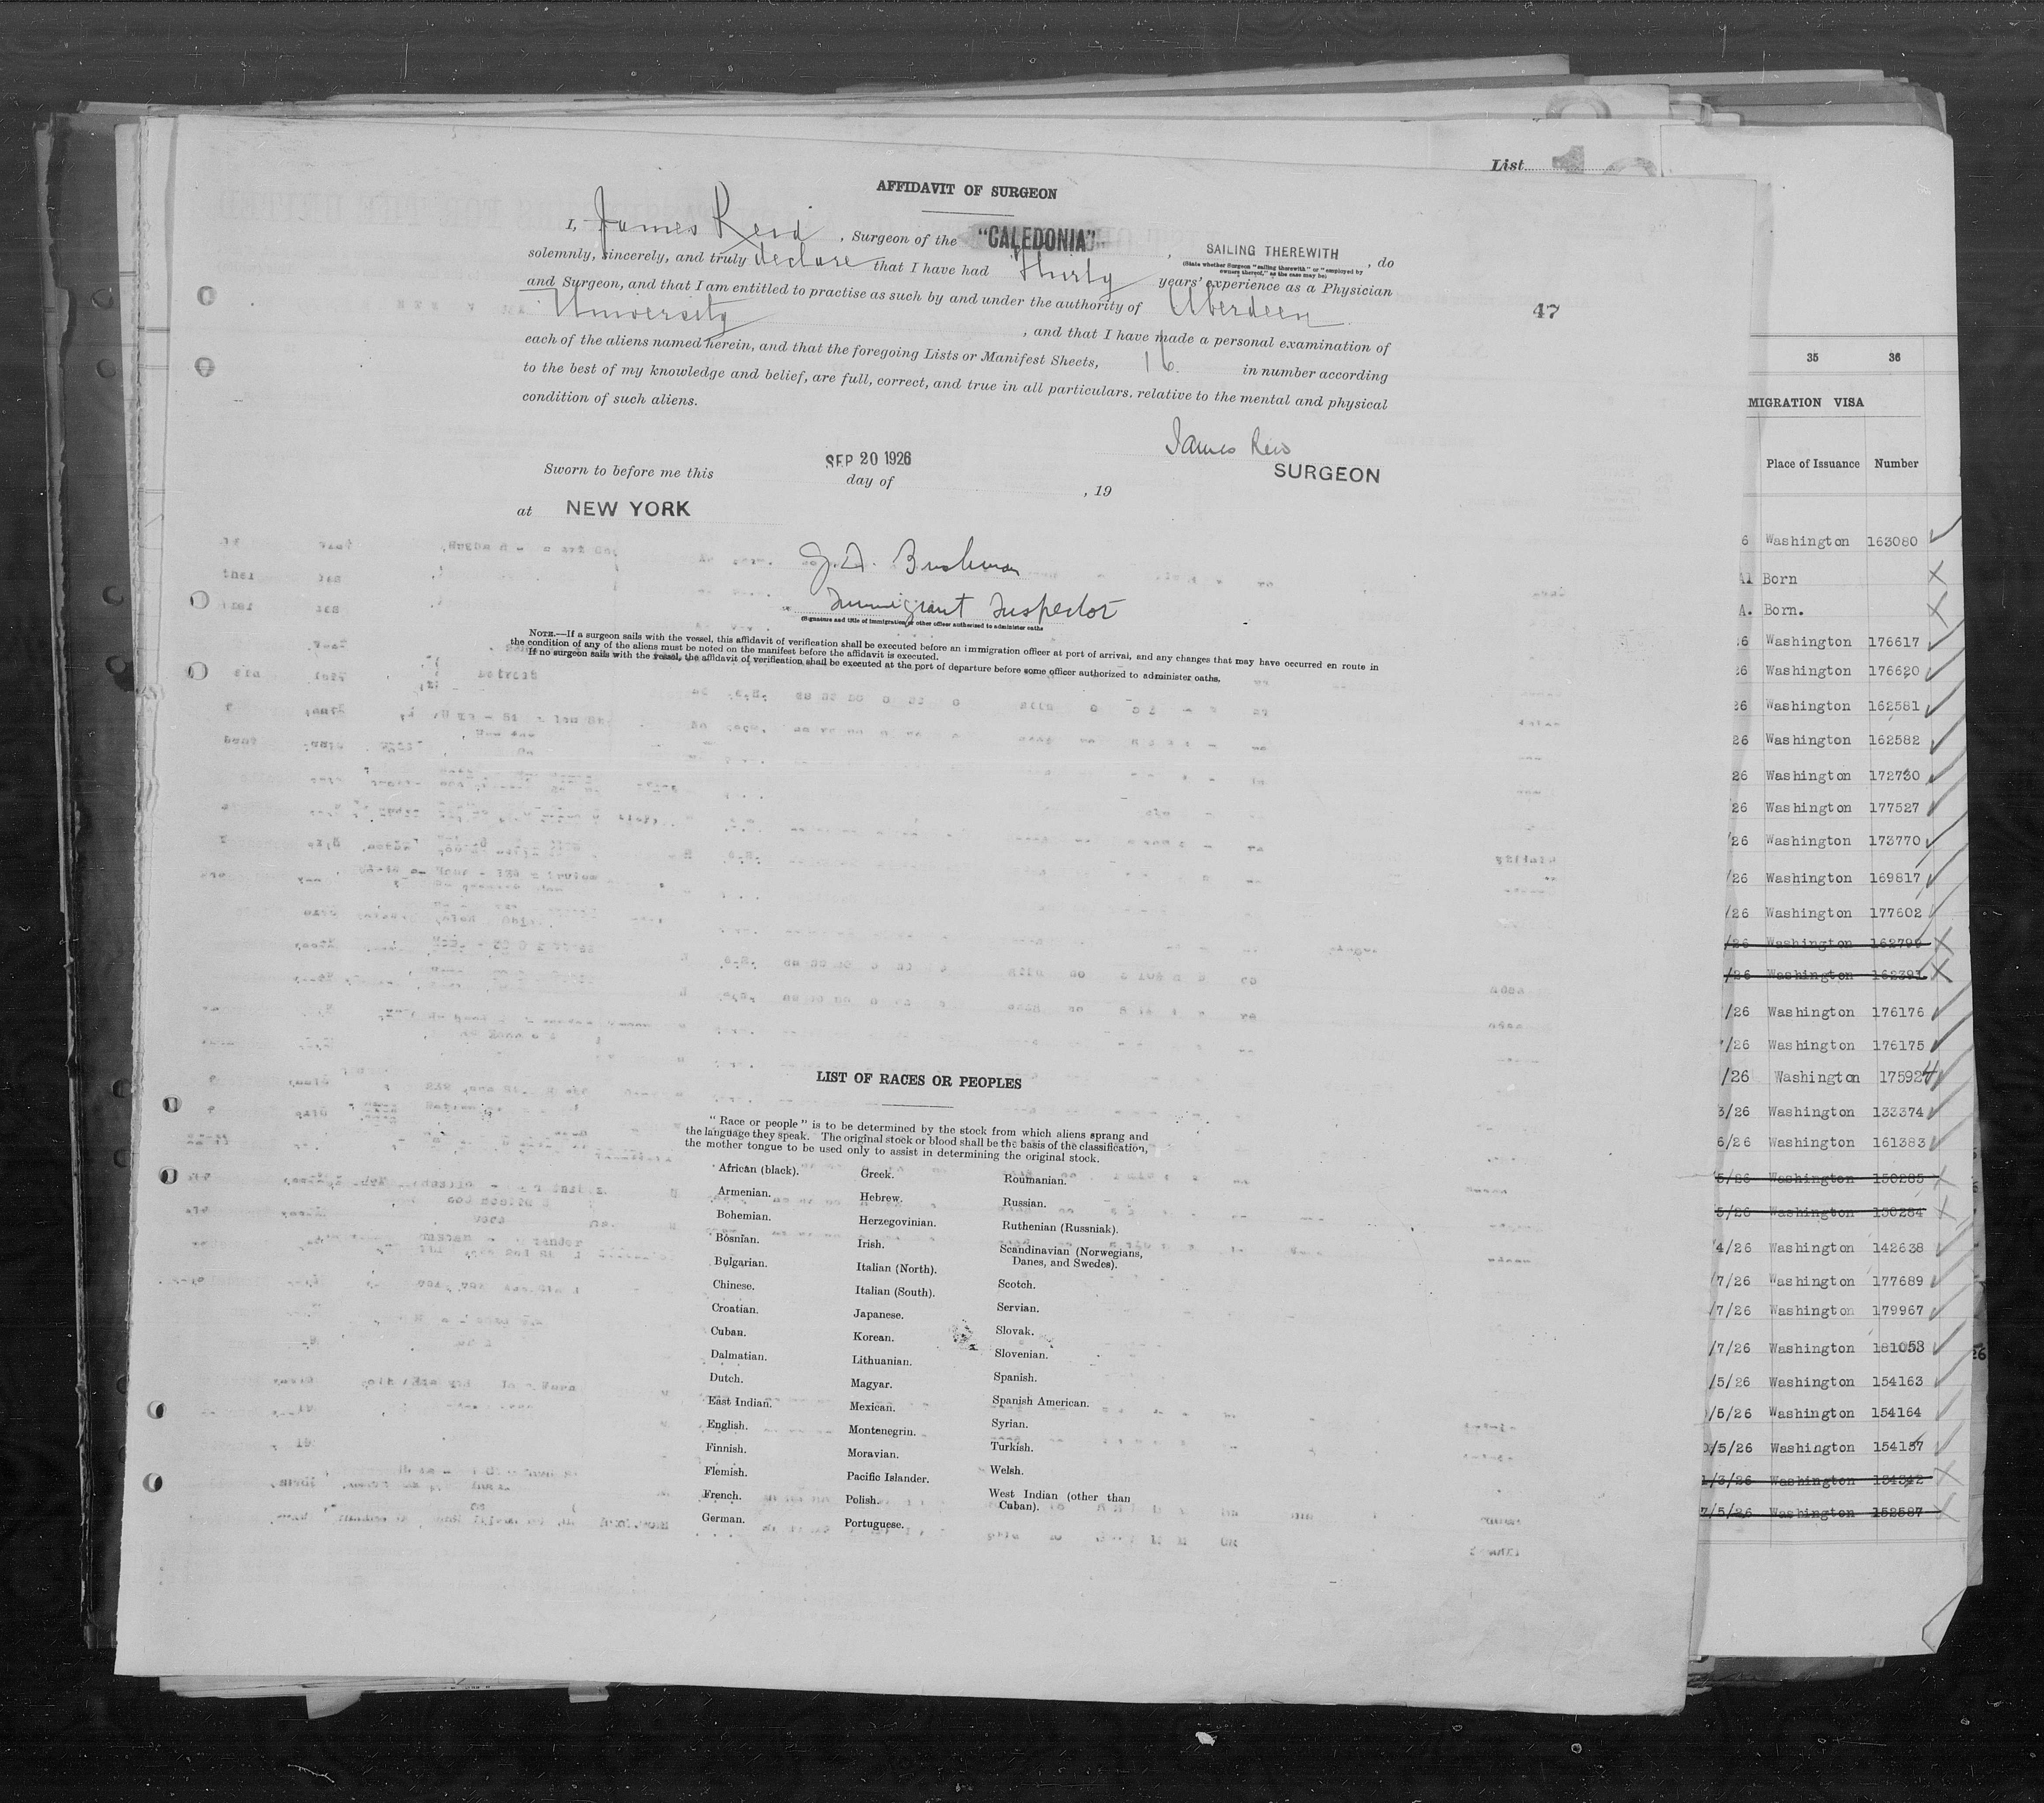 List
AFFIDAVIT OF SURGEON
I, James Reid , Surgeon of the "CALEDONIA" , SAILING THEREWITH , do
(State whether Surgeon "sailing therewith" or "employed by
owners thereof," as the case may be)
solemnly, sincerely, and truly declare that I have had Thirty years' experience as a Physician
and Surgeon, and that I am entitled to practise as such by and under the authority of Aberdeen
University , and that I have made a personal examination of
47
each of the aliens named herein, and that the foregoing Lists or Manifest Sheets, 16. in number according
to the best of my knowledge and belief, are full, correct, and true in all particulars, relative to the mental and physical
condition of such aliens.
James Reid
SURGEON
Sworn to before me this SEP 20 1926
day of , 19
at NEW YORK
Immigrant Inspector
(Signature and title of immigration or other officer authorized to administer oaths
NOTE.—If a surgeon sails with the vessel, this affidavit of verification shall be executed before an immigration officer at port of arrival, and any changes that may have occurred en route in
the condition of any of the aliens must be noted on the manifest before the affidavit is executed.
If no surgeon sails with the vessel, the affidavit of verification shall be executed at the port of departure before some officer authorized to administer oaths.
LIST OF RACES OR PEOPLES
"Race or people" is to be determined by the stock from which aliens sprang and
the language they speak. The original stock or blood shall be the basis of the classification,
the mother tongue to be used only to assist in determining the original stock.
African (black).
Armenian.
Bohemian.
Bosnian.
Bulgarian.
Chinese.
Croatian.
Cuban.
Dalmatian.
Dutch.
East Indian.
English.
Finnish.
Flemish.
French.
German.
Greek.
Hebrew.
Herzegovinian.
Irish.
Italian (North).
Italian (South).
Japanese.
Korean.
Lithuanian.
Magyar.
Mexican.
Montenegrin.
Moravian.
Pacific Islander.
Polish.
Portuguese.
Roumanian.
Russian.
Ruthenian (Russniak).
Scandinavian (Norwegians,
Danes, and Swedes).
Scotch.
Servian.
Slovak.
Slovenian.
Spanish.
Spanish American.
Syrian.
Turkish.
Welsh.
West Indian (other than
Cuban).
35 36
MIGRATION VISA
Place of Issuance Number
6 Washington 163080
Born
A. Born.
26 Washington 176617
26 Washington 176620
26 Washington 162581
26 Washington 162582
26 Washington 172730
26 Washington 177527
/26 Washington 173770
/26 Washington 169817
/26 Washington 177602
/26 Washington 162799
/26 Washington 162391
/26 Washington 176176
/26 Washington 176175
/26 Washington 175924
3/26 Washington 133374
6/26 Washington 161383
5/26 Washington 150285
5/26 Washington 150284
4/26 Washington 142638
/7/26 Washington 177689
/7/26 Washington 179967
/7/26 Washington 181053
/5/26 Washington 154163
/5/26 Washington 154164
/5/26 Washington 154157
/3/26 Washington 134342
7/5/26 Washington 152587